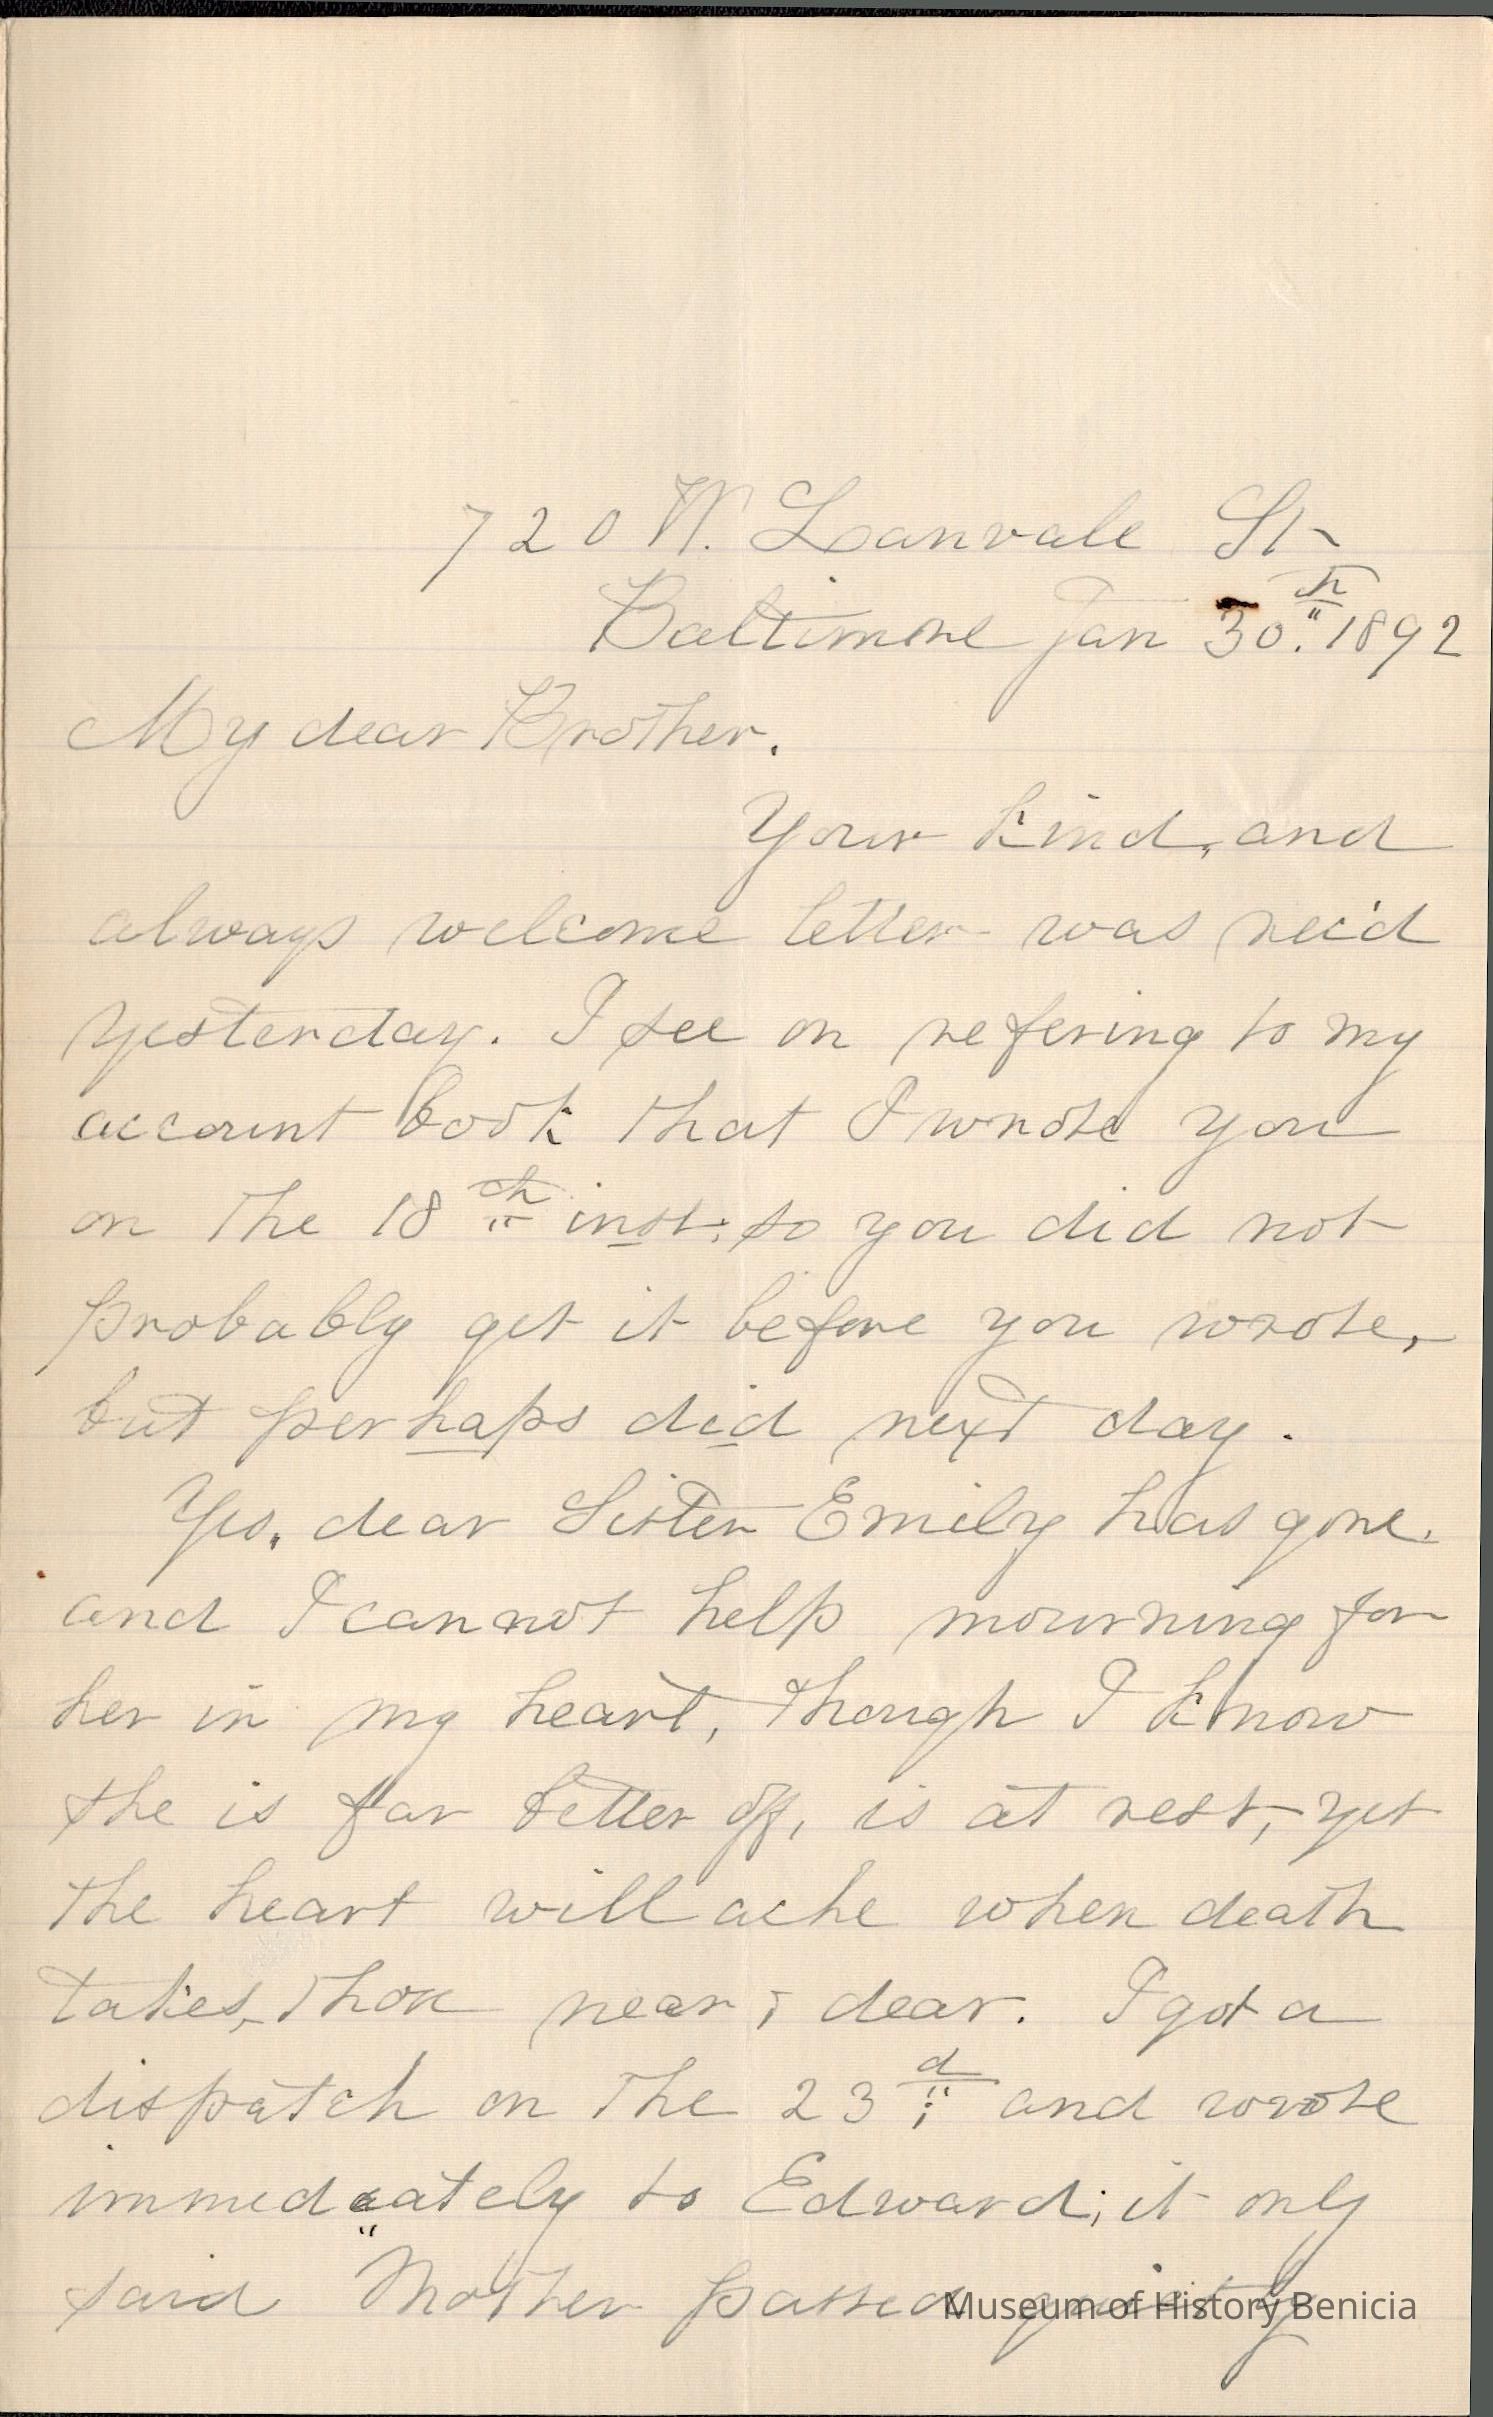 720 W. Lanvale St
Baltimore Jan 30.th 1892
My dear Brother.
Your kind, and
always welcome letter was rec'd
yesterday. I see on refering to my
account book that I wrote you
on the 18th inst. so you did not
probably get it before you wrote,
but perhaps did next day.
Yes, dear Sister Emily has gone.
and I cannot help mourning for
her in my heart, though I know
she is far better off, is at rest, yet
the heart will ache when death
takes, those near & dear. I got a
dispatch on the 23d; and wrote
immediately to Edward; it only
said "Mother passed quietly
Museum of History Benicia